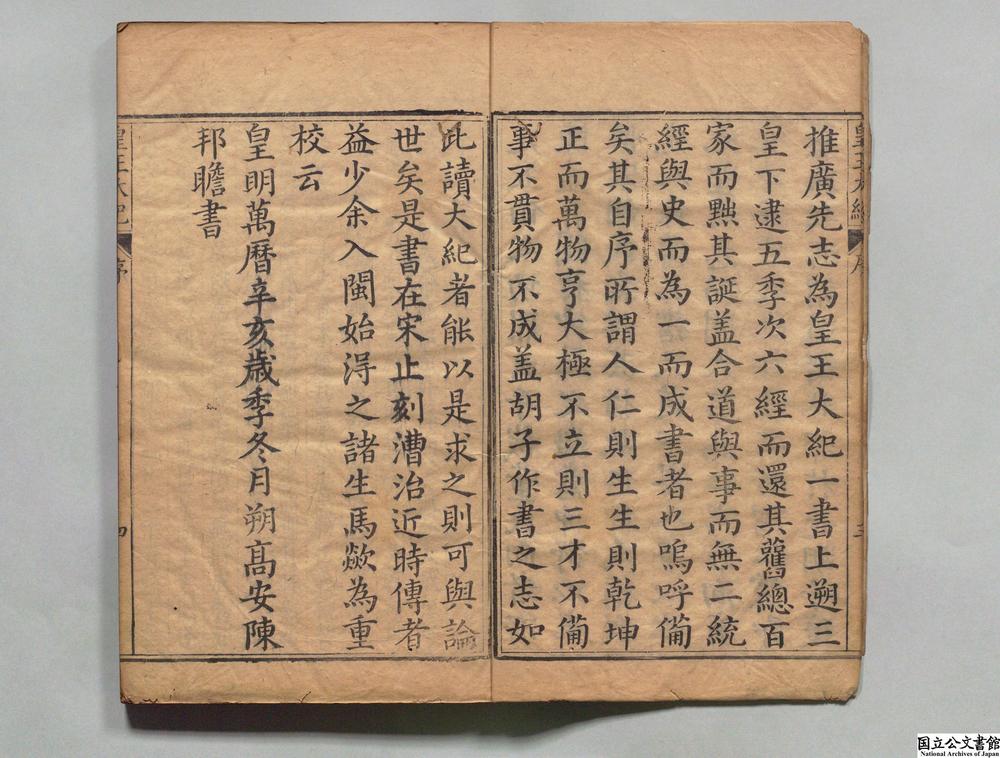 推廣先志為皇王大紀一書上遡三
皇下逮五季次六經而還其舊總百
家而黜其誕盖合道與事而無二統
經與史而為一而成書者也嗚呼備
矣其自序所謂人仁則生生則乾坤
正而萬物亨大極不立則三才不備
事不貫物不成盖胡子作書之志如
此讀大紀者能以是求之則可與論
世矣是書在宋止刻漕治近時傳者
益少余入閩始得之諸生馬歘為重
校云
皇明萬曆辛亥歲季冬月朔髙安陳
邦瞻書
皇王大紀
序
四
国立公文書館
National Archives of Japan